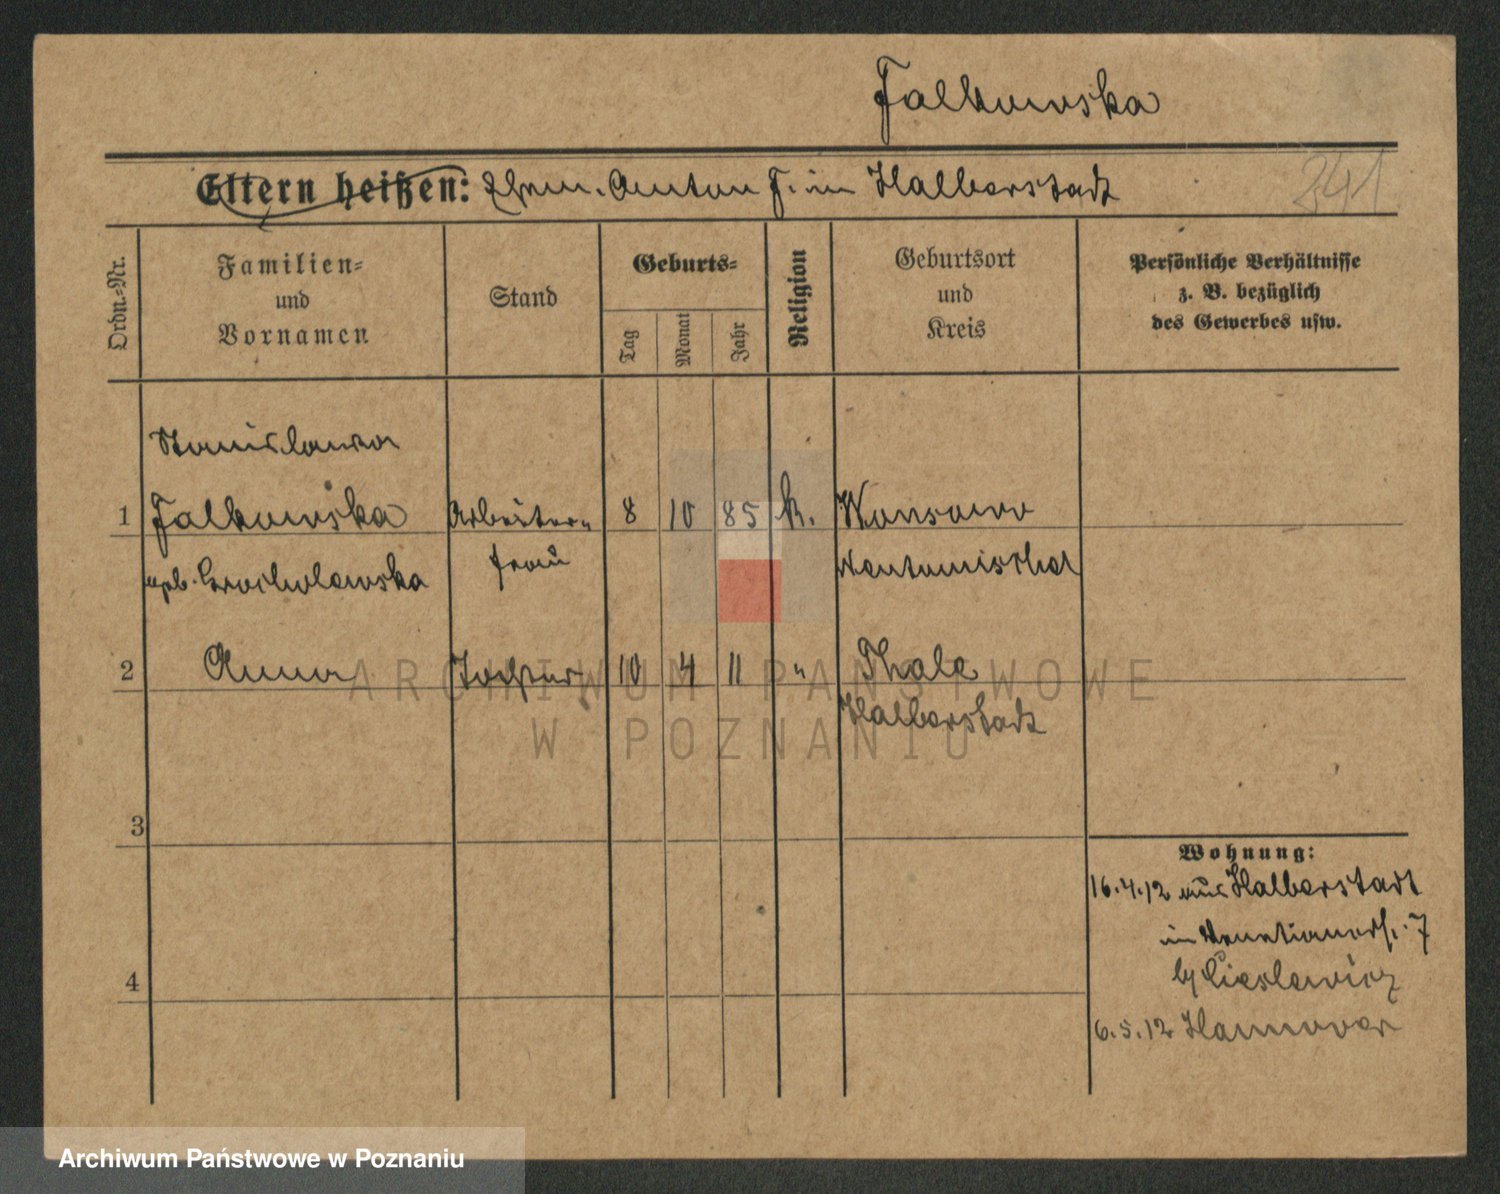 Falkowska
Eltern heißen: Ehem. Anton F. in Halberstadt
341
Ordn.-Nr.
Familien-
und
Vornamen
Stand
Geburts-
Tag
Monat
Jahr
Religion
Geburtsort
und
Kreis
Persönliche Verhältnisse
z. B. bezüglich
des Gewerbes usw.
Stanislawa
1 Falkowska Arbeiter- 8 10 85 k. Wonsowo
geb. Grocholewska frau Neutomischel
2 Anna Tochter 10 4 11 " Thale
Halberstadt
3
4
Wohnung:
16.4.12 aus Halberstadt
in Venetianerst. 7
by Cieslewicz
6.5.12 Hannover
ARCHIWUM PAŃSTWOWE
W POZNANIU
Archiwum Państwowe w Poznaniu